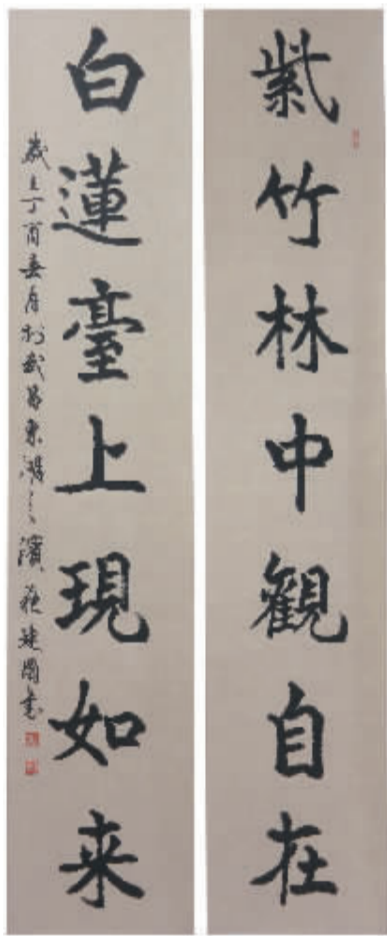 紫竹林中觀自在
白蓮臺上現如来
歲在丁酉春月於武昌東湖之濱 蘇建國書